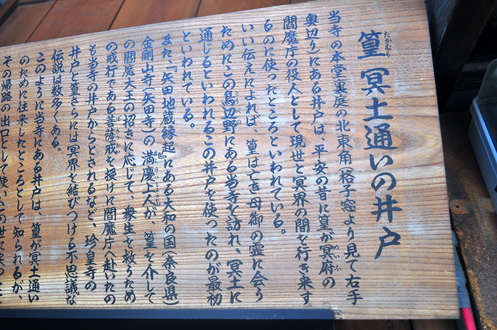 たかむら
篁 冥土通いの井戸
当寺の本堂裏庭の北東角(格子窓より見て右手
奥辺りにある井戸は、平安の昔に篁が冥府の
めいふ
閻魔庁の役人として現世と冥界の間を行き来す
るのに使ったところといわれている。
いい伝えによれば、篁は亡き母御の霊に会う
ためにこの鳥辺野にある当寺を訪れ、冥土に
通じるといわれるこの井戸を使ったのが最初
といわれている。
また、矢田地蔵縁起にある大和の国(奈良県)
金剛山寺(矢田寺)の満慶上人が、篁を介して
の閻魔大王の招きに応じて、衆生を救うため
の戒行である菩薩戒を授けに閻魔庁へ赴たの
も当寺の井戸からとされるなど、珍皇寺の
井戸と篁さらには冥界を結びつける不思議な
伝説は数多くある。
このように当寺にある井戸は、篁が冥土通い
のために往来したところとして知られるが、
その帰路の出口として